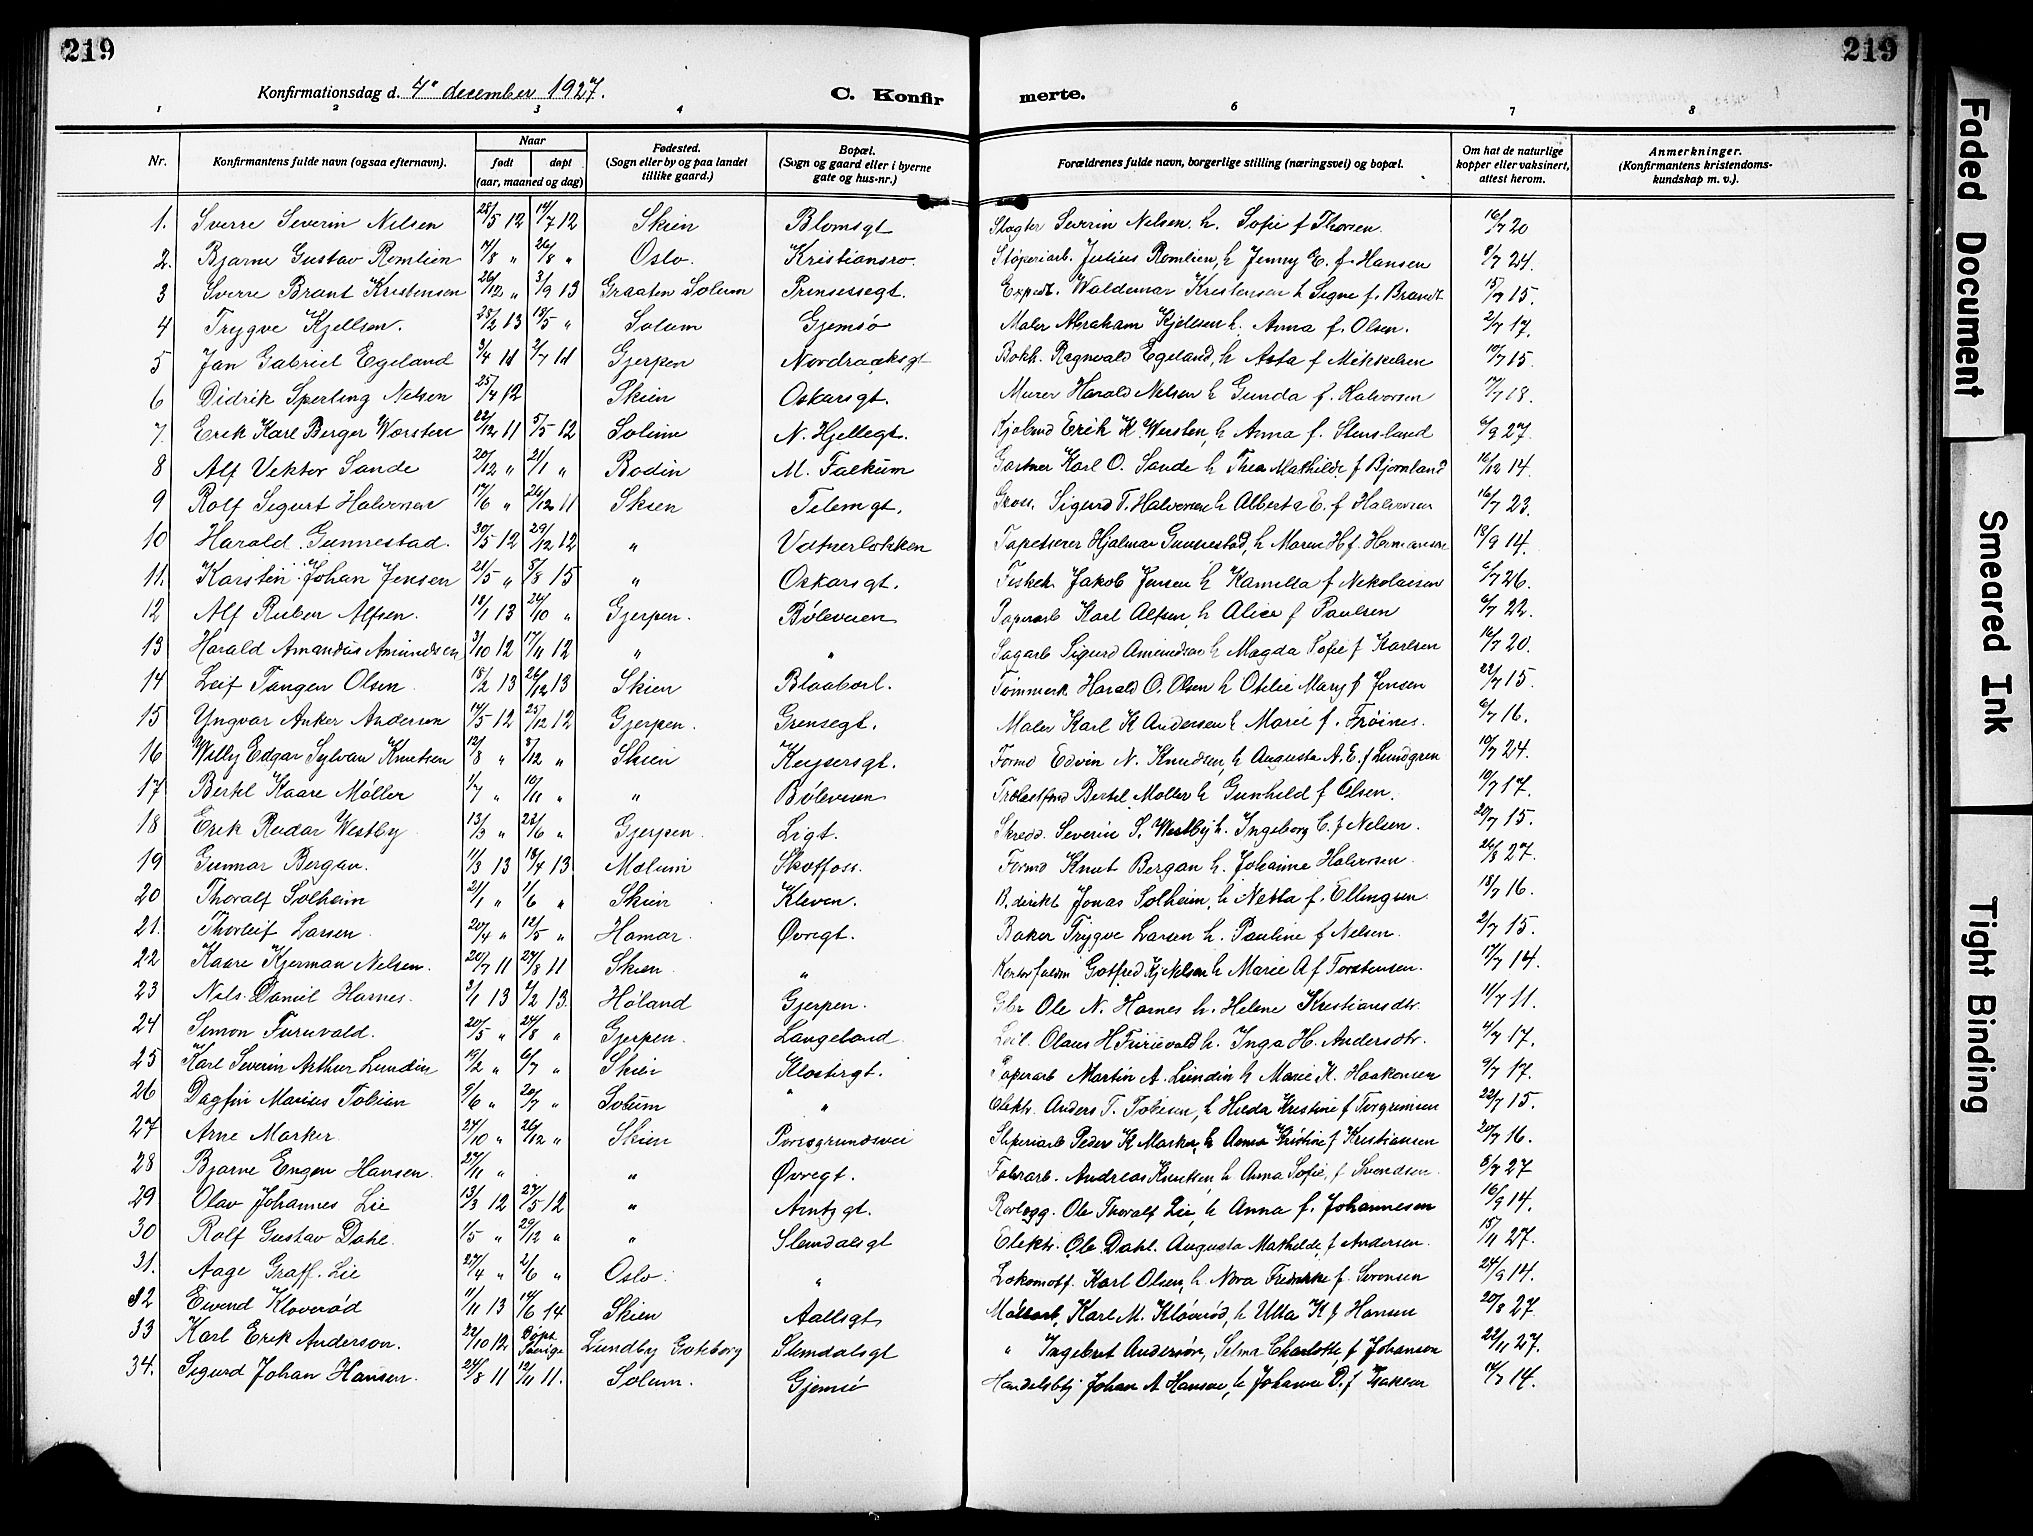 219
219
Konfirmationsdag d. 4' desember 1927.
C. Konfir merte.
1 2 3 4 6 7 8
Nr.
Konfirmantens fulde navn (ogsaa efternavn).
Naar født døpt (aar, maaned og dag)
Fødested. (Sogn eller by og paa landet tillike gaard.)
Bopæl. (Sogn og gaard eller i byerne gate og hus-nr.)
Forældrenes fulde navn, borgerlige stilling (næringsvei) og bopæl.
Om hat de naturlige kopper eller vaksinert, attest herom.
Anmerkninger. (Konfirmantens kristendoms-kundskap m. v.).
1. Sverre Severin Nelsen 25/5 12 14/7 12 Skien Blomsgt Slagter Severin Nelsen h. Sofie f Thorsen. 16/7 20
2. Bjarne Gustav Romlien 17/8 " 26/8 " Oslo. Kristiansro. Støperiarb. Julius Romlien, h Jenny E. f. Hansen 8/7 24.
3 Sverre Brant Kristensen 26/12 " 3/9 13 Graaten Solum Prinsessegt. Exped. Waldemar Kristensen h Signe f. Brandt 15/7 15.
4 Trygve Kjellsen. 25/2 13 18/5 " Solum Gjemsø Maler Abraham Kjellsen h. Anna f. Olsen. 2/7 17.
5 Jan Gabriel Egeland 3/4 11 2/7 11 Gjerpen Nordraaksgt Bokh. Ragnvald Egeland, h Asta f Mikkelsen 10/7 15.
6 Didrik Sperling Nelsen 25/4 12 Skien Oskarsgt. Murer Harald Nelsen h Gunda f. Halvorsen 17/7 18.
7. Erik Karl Berger Worsten 22/12 11 5/5 12 Solum N. Hjellegt. Erik K. Wersten, h Anna f. Stensland 6/9 27.
8 Alf Vektor Sande 20/12 " 21/1 " Bodin M. Falkum Gartner Karl O. Sande h Thea Mathilde f Bjørnland 16/12 14.
9 Rolf Sigurt Halvorsen 17/6 " 26/12 11 Skien Telemgt. Gross. Sigurd T. Halvorsen h Alberta E. f Halvorsen 16/7 23.
10 Harald Gunnestad. 30/5 12 29/12 12 " Vatnerløkken Tapetserer Hjalmar Gunnestad, h Maren H f. Hermansen 18/9 14.
11. Karsten Johan Jensen 21/5 " 5/8 15 " Oskarsgt. Fiskeh. Jakob Jensen h Kamilla f Nikolaisen 6/7 26.
12 Alf Ruben Alfsen. 18/1 13 26/10 " Gjerpen. Bøleveien Paperarb Karl Alfsen, h Alice f Paulsen 6/7 22.
13 Harald Amandus Amundsen 3/10 12 17/11 12 " " Sagarb Sigurd Amundsen h Magda Sofie f Karlsen 16/7 20.
14 Leif Tangen Olsen 18/2 13 26/12 13 Skien Blaaborl. Tømmerk Harald O. Olsen h Otelie Mary f Jensen 22/7 15.
15 Yngvar Anker Andersen 14/5 12 25/12 12 Gjerpen. Grensegt. Maler Karl K Andersen h Marie f. Frøines. 6/7 16.
16 Willy Edgar Sylvan Knutsen 12/8 " 8/12 " Skien Keysersgt. Formd Edvin N. Knudsen, h Augusta A. E. f Lundgren 10/7 24.
17 Bertel Kaare Møller 1/7 " 10/11 " " Bøleveien Bertel Møller h Gunhild f Olsen. 10/7 17.
18 Erik Reidar Westby 13/3 " 22/6 " Gjerpen. Ligt. Skredd. Severin S. Westby h. Ingeborg C. f Nelsen. 20/7 15.
19 Gunnar Bergan. 11/3 13 18/4 13 Melum Skotfoss. Formd Knut Bergan h. Johanne Halvorsen 26/8 27.
20 Thoralf Solheim 21/1 " 1/6 " Skien Kleven. B. direkt Jonas Solheim, h Netta f. Ellingsen. 18/7 16.
21. Thorleif Larsen. 20/4 " 12/5 " Hamar. Øvregt. Baker Trygve Larsen h. Pauline f Nelsen. 2/7 15.
22 Kaare Kjerman Nelsen. 20/7 11 27/8 11 Skien. " Gotfred Kj Nelsen h Marie A f Torstensen. 17/7 14.
23 Nils Daniel Harnes. 3/1 13 2/2 13. Høland Gjerpen. Gbr Ole N. Harnes h. Helene Kristiansdtr. 11/7 11.
24 Simon Furuvald. 20/5 " 24/8 " Gjerpen. Langeland Leil. Olaus H Furuvald h. Inga H. Andersdtr. 4/7 17.
25 Karl Severin Arthur Lundin 19/2 " 6/7 " Skien Klostergt. Paperarb Martin A. Lundin h Marie K. Haakonsen 9/7 17.
26 Dagfin Marius Tobisen 9/6 " 20/7 " Solum " Elektr. Anders T. Tobisen, h Hilda Kristine f Torgrimsen 22/7 15.
27 Arne Marker. 24/10 " 26/12 " Skien Porsgrunnsvei Sliperiarb Peder K Marker, h Anna Kristine f Kristiansen 20/7 16.
28 Bjarne Engen Hansen. 27/11 " " Øvregt. Fabrarb. Andreas Knutsen h Anna Sofie f Svendsen. 8/7 27
29 Olav Johannes Lie 13/3 12 27/5 12 " Arntzgt. Rørlegg. Ole Thoralf Lie, h Anna f. Johannesen 16/9 14.
30 Rolf Gustav Dahl. 1/5 " 29/12 " " Slemdalsgt Elektr. Ole Dahl. Augusta Mathilde f Andersen. 15/11 27.
31. Aage Graff. Lie 27/4 " 2/6 " Oslo. " Lokomotf. Karl Olsen, h. Nora Fredrikke f. Sørensen 24/9 14.
32 Eivind Kloverød 11/11 13 14/6 14 Skien Aallsgt Karl M. Kløverød, h Ulla K f Hansen 20/8 27.
33 Karl Erik Anderson. 22/10 12 Døpt Sverige Lundby Goteborg Slemdalsgt " Ingebret Anderson, Selma Charlotte, f Johanson 22/11 27.
34. Sigurd Johan Hansen. 24/8 11 12/11 11. Solum. Gjemsø Handelsbtj Johan A Hansen, h Johanne D. f Isaksen 14/7 14.
Faded Document
Smeared Ink
Tight Binding